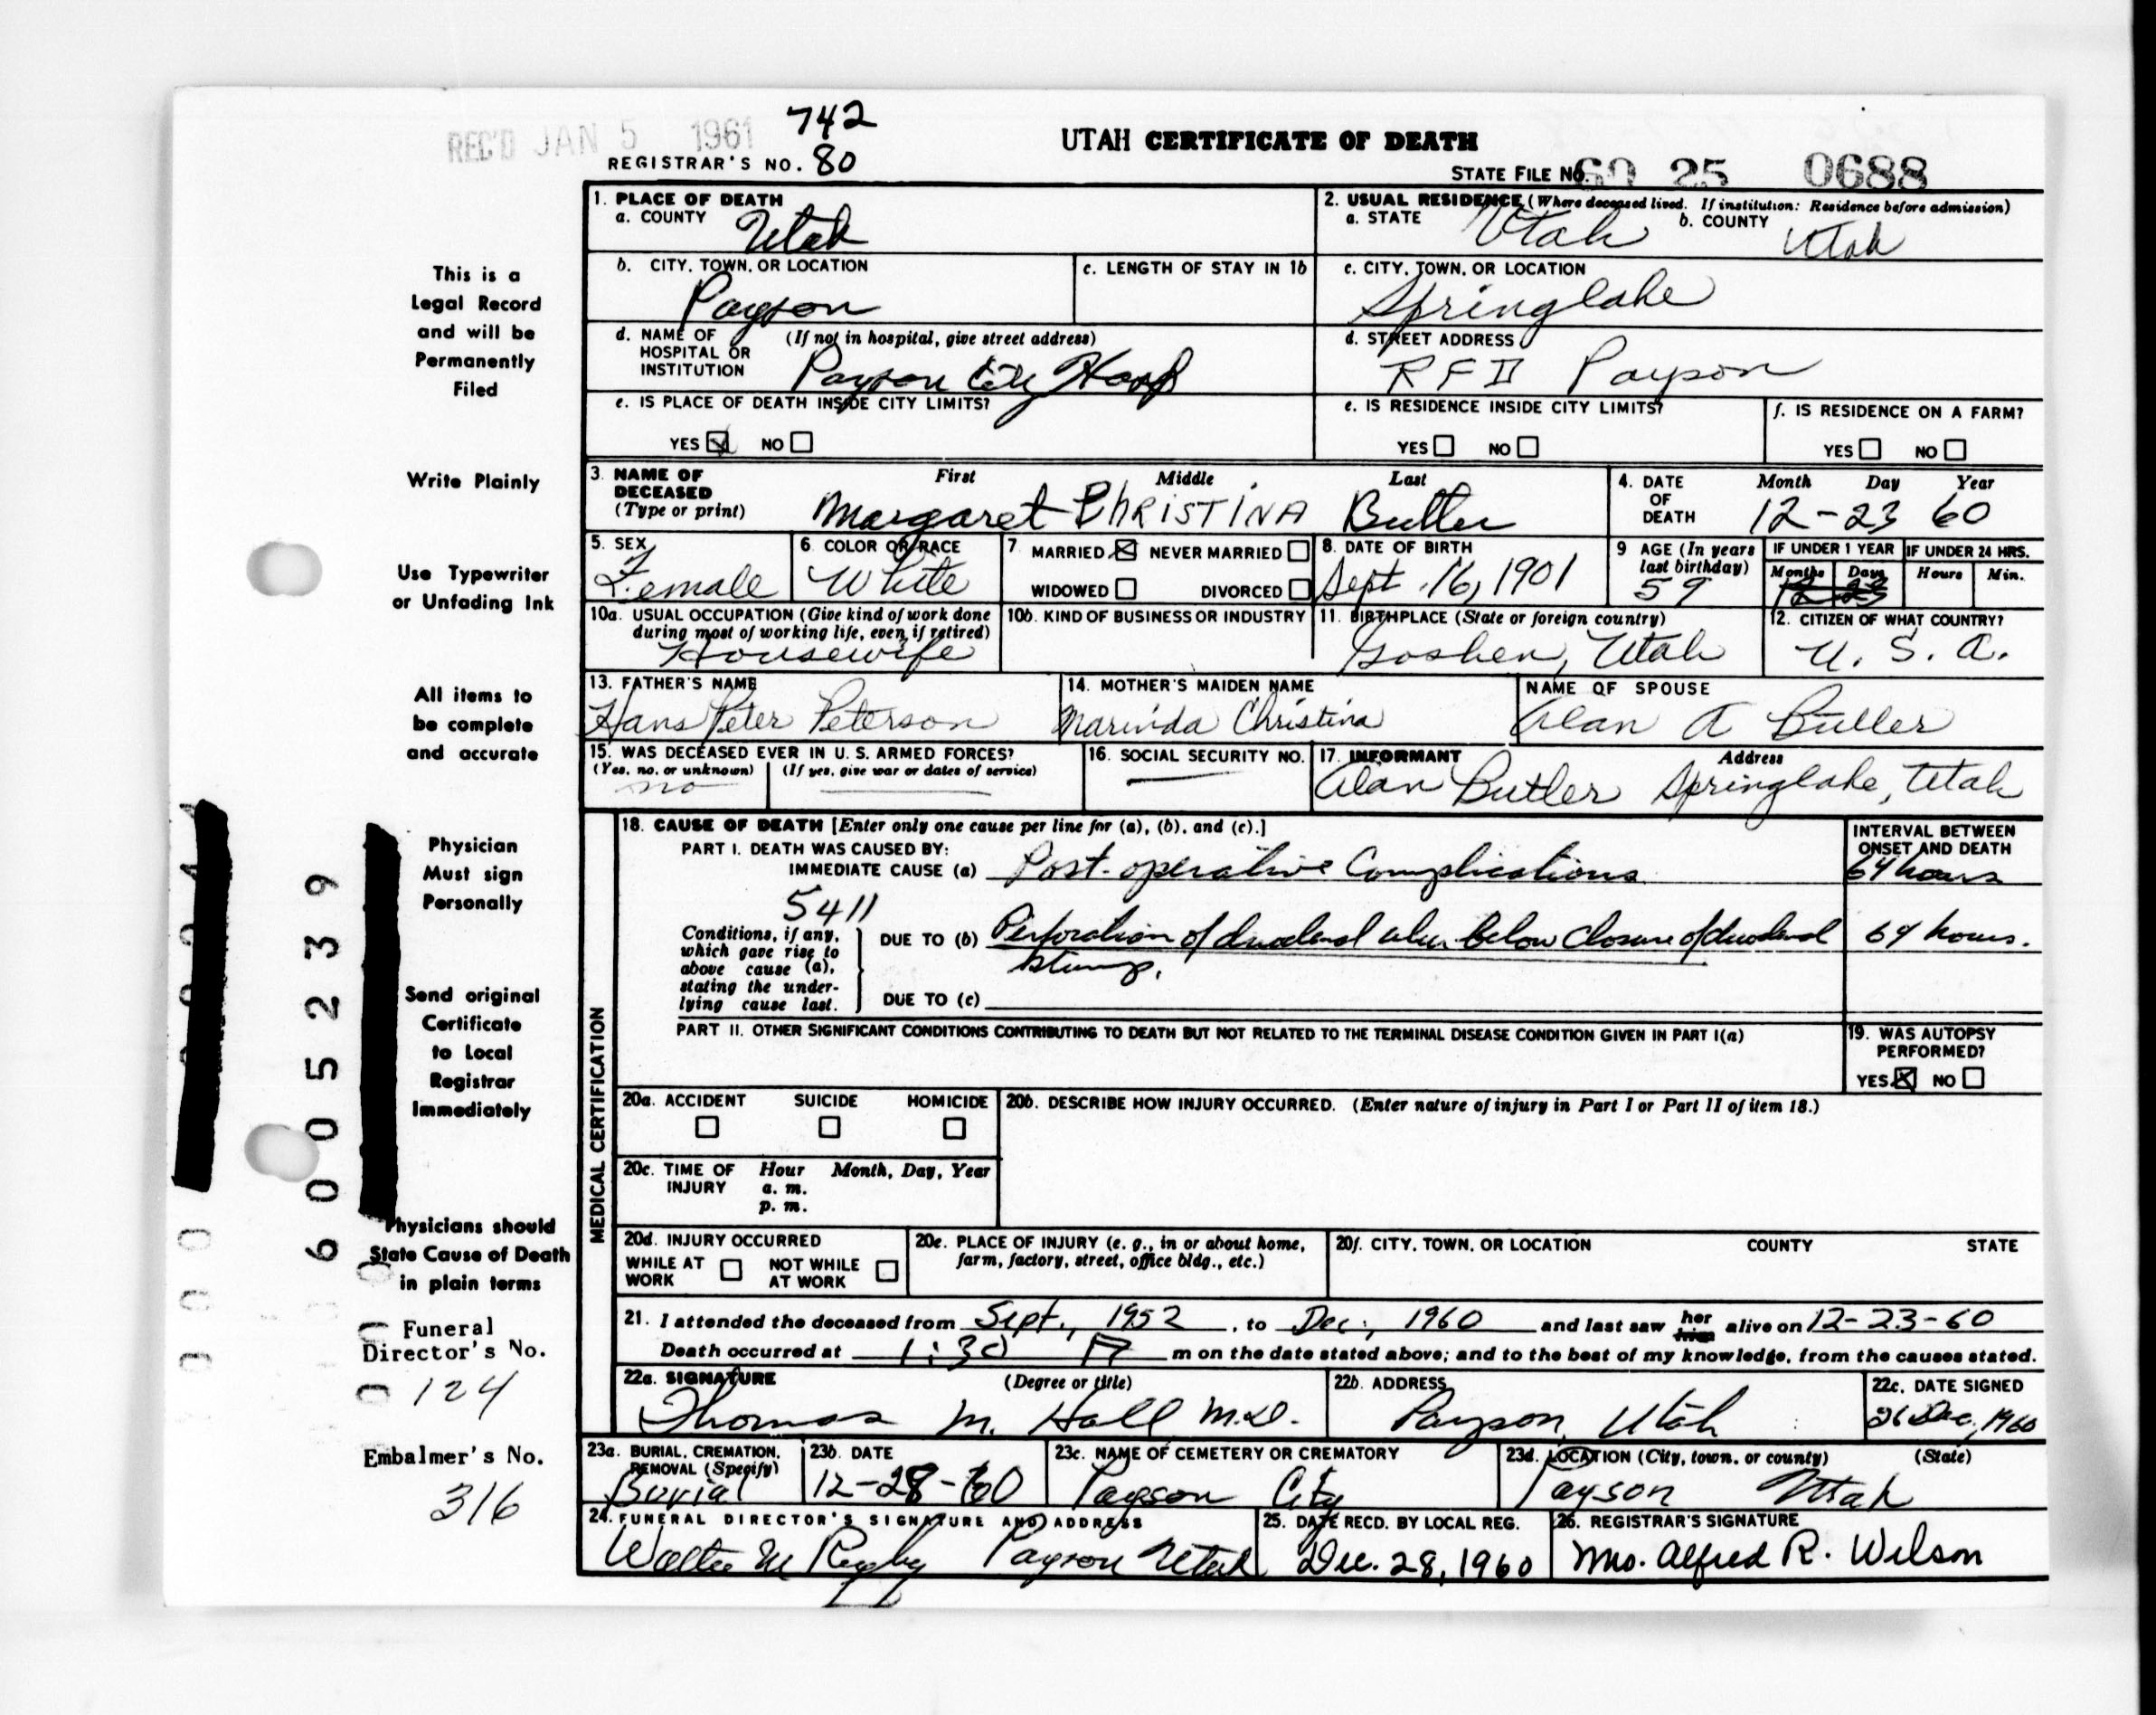 REC'D JAN 5 1961
742
UTAH CERTIFICATE OF DEATH
REGISTRAR'S NO. 80
STATE FILE NO. 60 25 0688
1. PLACE OF DEATH
a. COUNTY Utah
2. USUAL RESIDENCE (Where deceased lived. If institution: Residence before admission)
a. STATE Utah b. COUNTY Utah
b. CITY, TOWN, OR LOCATION Payson
c. LENGTH OF STAY IN 1b
c. CITY, TOWN, OR LOCATION Springlake
d. NAME OF HOSPITAL OR INSTITUTION (If not in hospital, give street address) Payson City Hosp
d. STREET ADDRESS RFD Payson
e. IS PLACE OF DEATH INSIDE CITY LIMITS?
YES ☒ NO ☐
e. IS RESIDENCE INSIDE CITY LIMITS?
YES ☐ NO ☐
f. IS RESIDENCE ON A FARM?
YES ☐ NO ☐
3. NAME OF DECEASED (Type or print) First Middle Last
Margaret Christina Butler
4. DATE OF DEATH Month Day Year
12-23 60
5. SEX Female
6. COLOR OR RACE White
7. MARRIED ☒ NEVER MARRIED ☐
WIDOWED ☐ DIVORCED ☐
8. DATE OF BIRTH Sept. 16, 1901
9 AGE (In years last birthday) 59
IF UNDER 1 YEAR Months Days
IF UNDER 24 HRS. Hours Min.
10a. USUAL OCCUPATION (Give kind of work done during most of working life, even if retired)
Housewife
10b. KIND OF BUSINESS OR INDUSTRY
11. BIRTHPLACE (State or foreign country)
Goshen, Utah
12. CITIZEN OF WHAT COUNTRY?
U. S. A.
13. FATHER'S NAME
Hans Peter Peterson
14. MOTHER'S MAIDEN NAME
Marinda Christina
NAME OF SPOUSE
Alan A Butler
15. WAS DECEASED EVER IN U. S. ARMED FORCES?
(Yes, no, or unknown) (If yes, give war or dates of service)
no
16. SOCIAL SECURITY NO.
17. INFORMANT Address
Alan Butler Springlake, Utah
MEDICAL CERTIFICATION
18. CAUSE OF DEATH [Enter only one cause per line for (a), (b), and (c).]
INTERVAL BETWEEN ONSET AND DEATH
PART I. DEATH WAS CAUSED BY:
IMMEDIATE CAUSE (a) Post-operative Complications 64 hours
5411
Conditions, if any, which gave rise to above cause (a), stating the underlying cause last.
DUE TO (b) Perforation of duodenal ulcer below closure of duodenal stump. 64 hours.
DUE TO (c)
PART II. OTHER SIGNIFICANT CONDITIONS CONTRIBUTING TO DEATH BUT NOT RELATED TO THE TERMINAL DISEASE CONDITION GIVEN IN PART I(a)
19. WAS AUTOPSY PERFORMED?
YES ☒ NO ☐
20a. ACCIDENT SUICIDE HOMICIDE
☐ ☐ ☐
20b. DESCRIBE HOW INJURY OCCURRED. (Enter nature of injury in Part I or Part II of item 18.)
20c. TIME OF INJURY Hour Month, Day, Year
a. m.
p. m.
20d. INJURY OCCURRED
WHILE AT WORK ☐ NOT WHILE AT WORK ☐
20e. PLACE OF INJURY (e. g., in or about home, farm, factory, street, office bldg., etc.)
20f. CITY, TOWN, OR LOCATION COUNTY STATE
21. I attended the deceased from Sept., 1952, to Dec., 1960 and last saw her him alive on 12-23-60
Death occurred at 1:30 P m on the date stated above; and to the best of my knowledge, from the causes stated.
22a. SIGNATURE (Degree or title)
Thomas M. Hall M.D.
22b. ADDRESS
Payson, Utah
22c. DATE SIGNED
26 Dec, 1960
23a. BURIAL, CREMATION, REMOVAL (Specify)
Burial
23b. DATE
12-28-60
23c. NAME OF CEMETERY OR CREMATORY
Payson City
23d. LOCATION (City, town, or county) (State)
Payson Utah
24. FUNERAL DIRECTOR'S SIGNATURE AND ADDRESS
Walter M Rigby Payson Utah
25. DATE RECD. BY LOCAL REG.
Dec. 28, 1960
26. REGISTRAR'S SIGNATURE
Mrs. Alfred R. Wilson
This is a
Legal Record
and will be
Permanently
Filed
Write Plainly
Use Typewriter
or Unfading Ink
All items to
be complete
and accurate
Physician
Must sign
Personally
Send original
Certificate
to Local
Registrar
Immediately
Physicians should
State Cause of Death
in plain terms
Funeral
Director's No.
124
Embalmer's No.
316
6005239